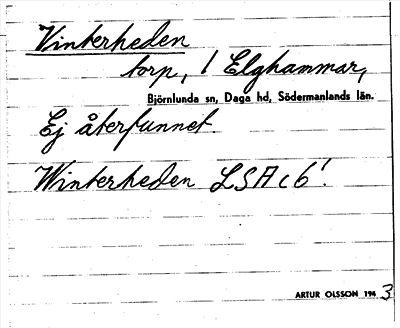 Vinterheden
torp, / Elghammar,
Björnlunda sn, Daga hd, Södermanlands län.
Ej återfunnet.
Winterheden LSA c 6!
ARTUR OLSSON 1943